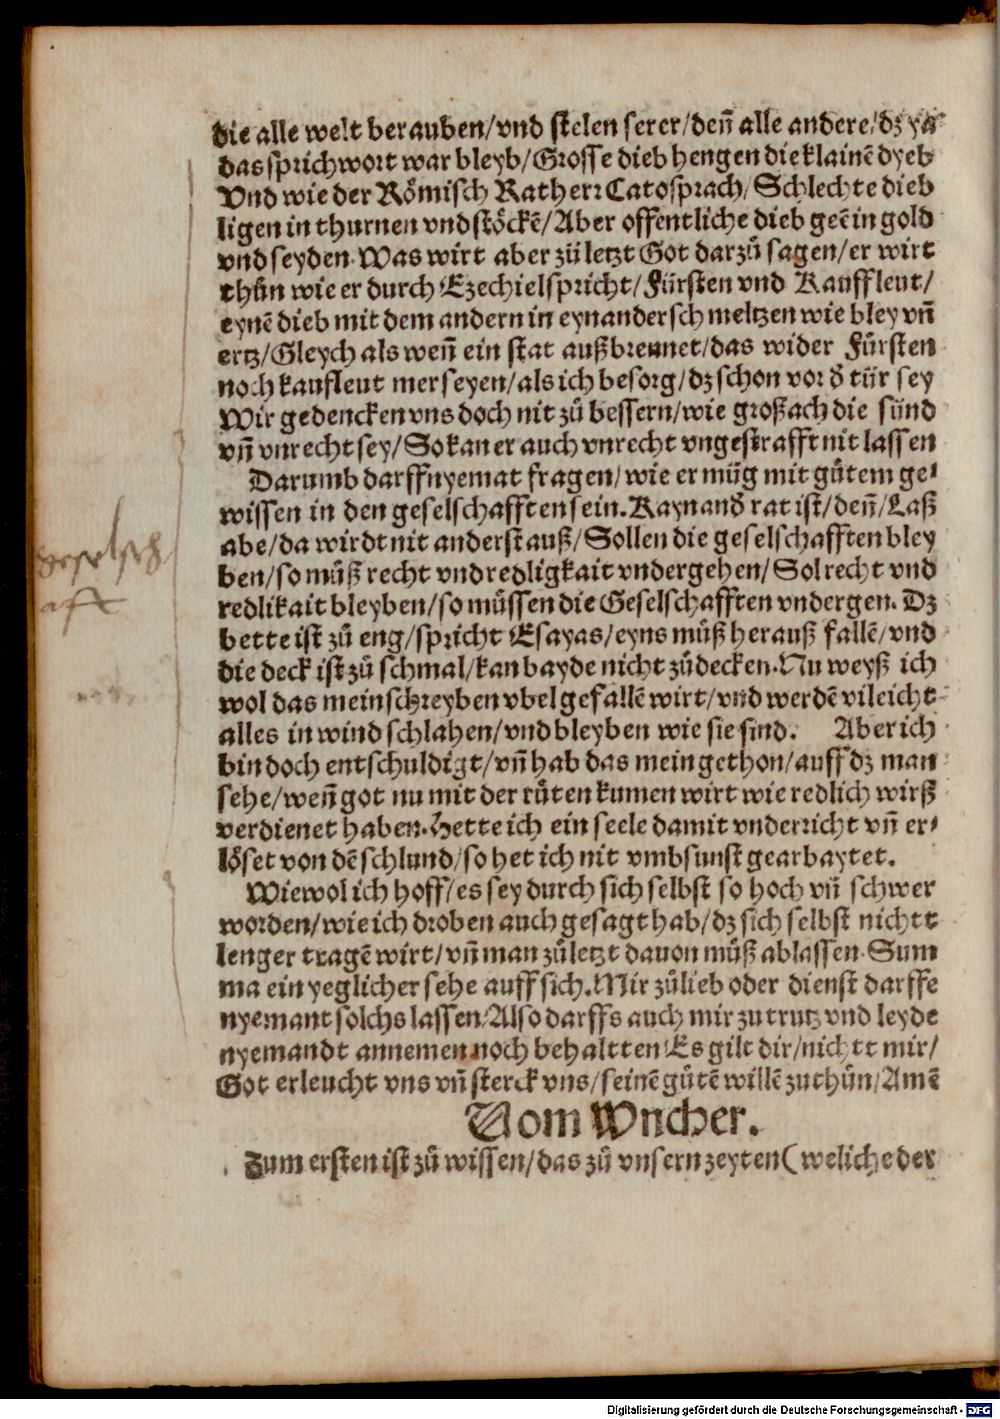 die alle welt berauben/vnd stelen serer/deñ alle andere/dz ya
das sprichwort war bleyb/Grosse dieb hengen die klainẽ dyeb
Vnd wie der Römisch Ratherr Cato sprach/Schlechte dieb
ligen in thurnen vnd stöckẽ/Aber offentliche dieb geẽ in gold
vnd seyden. Was wirt aber zů letzt Got darzů sagen/er wirt
thůn wie er durch Ezechiel spricht/Fürsten vnd Kauffleut/
eynẽ dieb mit dem andern in eynander schmeltzen wie bley vñ
ertz/Gleych als weñ ein stat außbrennet/das wider Fürsten
noch kaufleut mer seyen/als ich besorg/dz schon vor d̃ tür sey
Wir gedencken vns doch nit zů bessern/wie groß ach die sünd
vñ vnrecht sey/So kan er auch vnrecht vngestrafft nit lassen
Darumb darff nyemat fragen/wie er müg mit gůtem ge⸗
wissen in den geselschafften sein. Kayn and̃ rat ist/deñ/Laß
abe/da wirdt nit anderst auß/Sollen die geselschafften bley
ben/so můß recht vnd redligkait vndergehen/Sol recht vnd
redlikait bleyben/so můssen die Geselschafften vndergen. Dz
bette ist zů eng/spricht Esayas/eyns můß herauß fallẽ/vnd
die deck ist zů schmal/kan bayde nicht zůdecken. Nu weyß ich
wol das mein schreyben vbel gefallẽ wirt/vnd werdẽ vileicht
alles in wind schlahen/vnd bleyben wie sie sind. Aber ich
bin doch entschuldigt/vñ hab das mein gethon/auff dz man
sehe/weñ got nu mit der růten kumen wirt wie redlich wirß
verdienet haben. Hette ich ein seele damit vnderricht vñ er⸗
löset von dẽ schlund/so het ich nit vmbsunst gearbaytet.
Wiewol ich hoff/es sey durch sich selbst so hoch vñ schwer
worden/wie ich droben auch gesagt hab/dz sich selbst nichtt
lenger tragẽ wirt/vñ man zůletzt dauon můß ablassen. Sum
ma ein yeglicher sehe auff sich. Mir zůlieb oder dienst darffe
nyemant solchs lassen/Also darffs auch mir zu trutz vnd leyde
nyemandt annemen noch behaltten/Es gilt dir/nichtt mir/
Got erleucht vns vñ sterck vns/seinẽ gůtẽ willẽ zuthůn/Amẽ
Vom Wucher.
Zum ersten ist zů wissen/das zů vnsern zeyten (weliche der
geselsch
aft
Digitalisierung gefördert durch die Deutsche Forschungsgemeinschaft - DFG